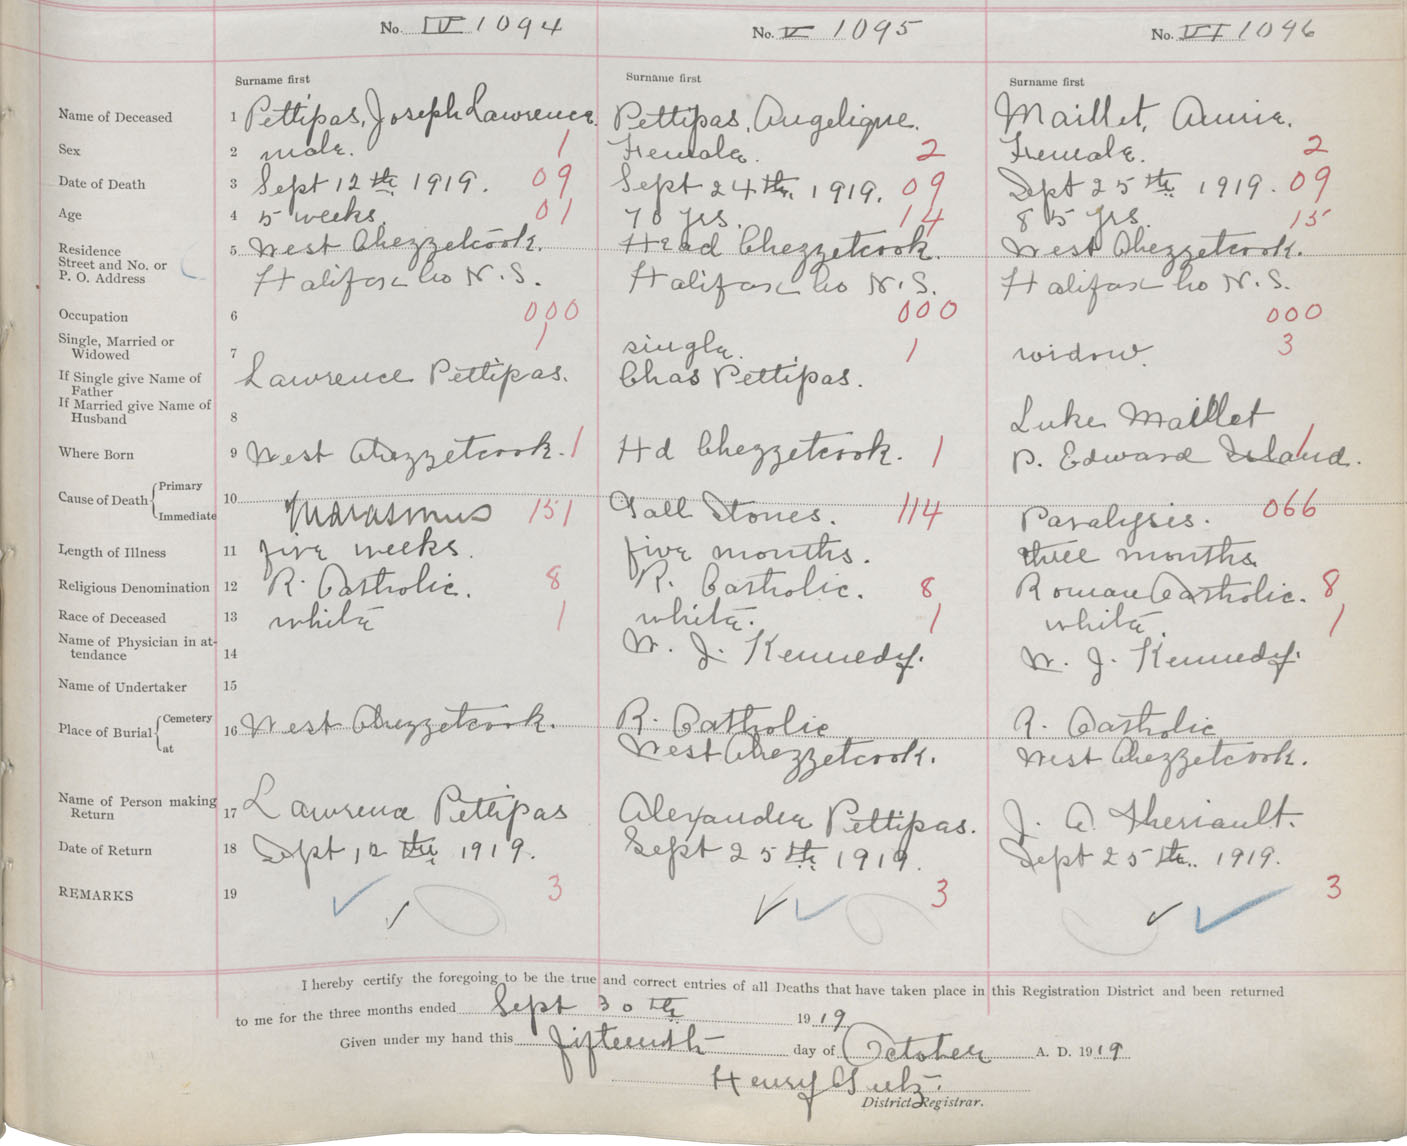 No. IV 1094 No. V 1095 No. VI 1096
Surname first Surname first Surname first
Name of Deceased 1 Pettipas, Joseph Lawrence. Pettipas, Angelique. Maillet, Annie.
Sex 2 male. 1 Female. 2 Female. 2
Date of Death 3 Sept 12th 1919. 09 Sept 24th, 1919. 09 Sept 25th 1919. 09
Age 4 5 weeks. 01 70 yrs. 14 85 yrs. 15
Residence 5 West Chezzetcook. Head Chezzetcook. West Chezzetcook.
Street and No. or
P. O. Address Halifax Co N.S. Halifax Co N.S. Halifax Co N.S.
Occupation 6 000 000 000
Single, Married or
Widowed 7 1 single. 1 widow. 3
If Single give Name of
Father Lawrence Pettipas. Chas Pettipas.
If Married give Name of
Husband 8 Luke Maillet
Where Born 9 West Chezzetcook. 1 Hd Chezzetcook. 1 P. Edward Island. 1
Cause of Death { Primary
Immediate 10 Marasmus 151 Gall Stones. 114 Paralysis. 066
Length of Illness 11 five weeks. five months. three months.
Religious Denomination 12 R. Catholic. 8 R. Catholic. 8 Roman Catholic. 8
Race of Deceased 13 white 1 white. 1 white. 1
Name of Physician in at-
tendance 14 W. J. Kennedy. W. J. Kennedy.
Name of Undertaker 15
Place of Burial { Cemetery
at 16 West Chezzetcook. R. Catholic R. Catholic
West Chezzetcook. West Chezzetcook.
Name of Person making
Return 17 Lawrence Pettipas Alexander Pettipas. J. A. Theriault.
Date of Return 18 Sept 12th 1919. Sept 25th 1919. Sept 25th. 1919.
REMARKS 19 3 3 3
I hereby certify the foregoing to be the true and correct entries of all Deaths that have taken place in this Registration District and been returned
to me for the three months ended Sept 30th 1919
Given under my hand this fifteenth day of October A. D. 1919
Henry
District Registrar.